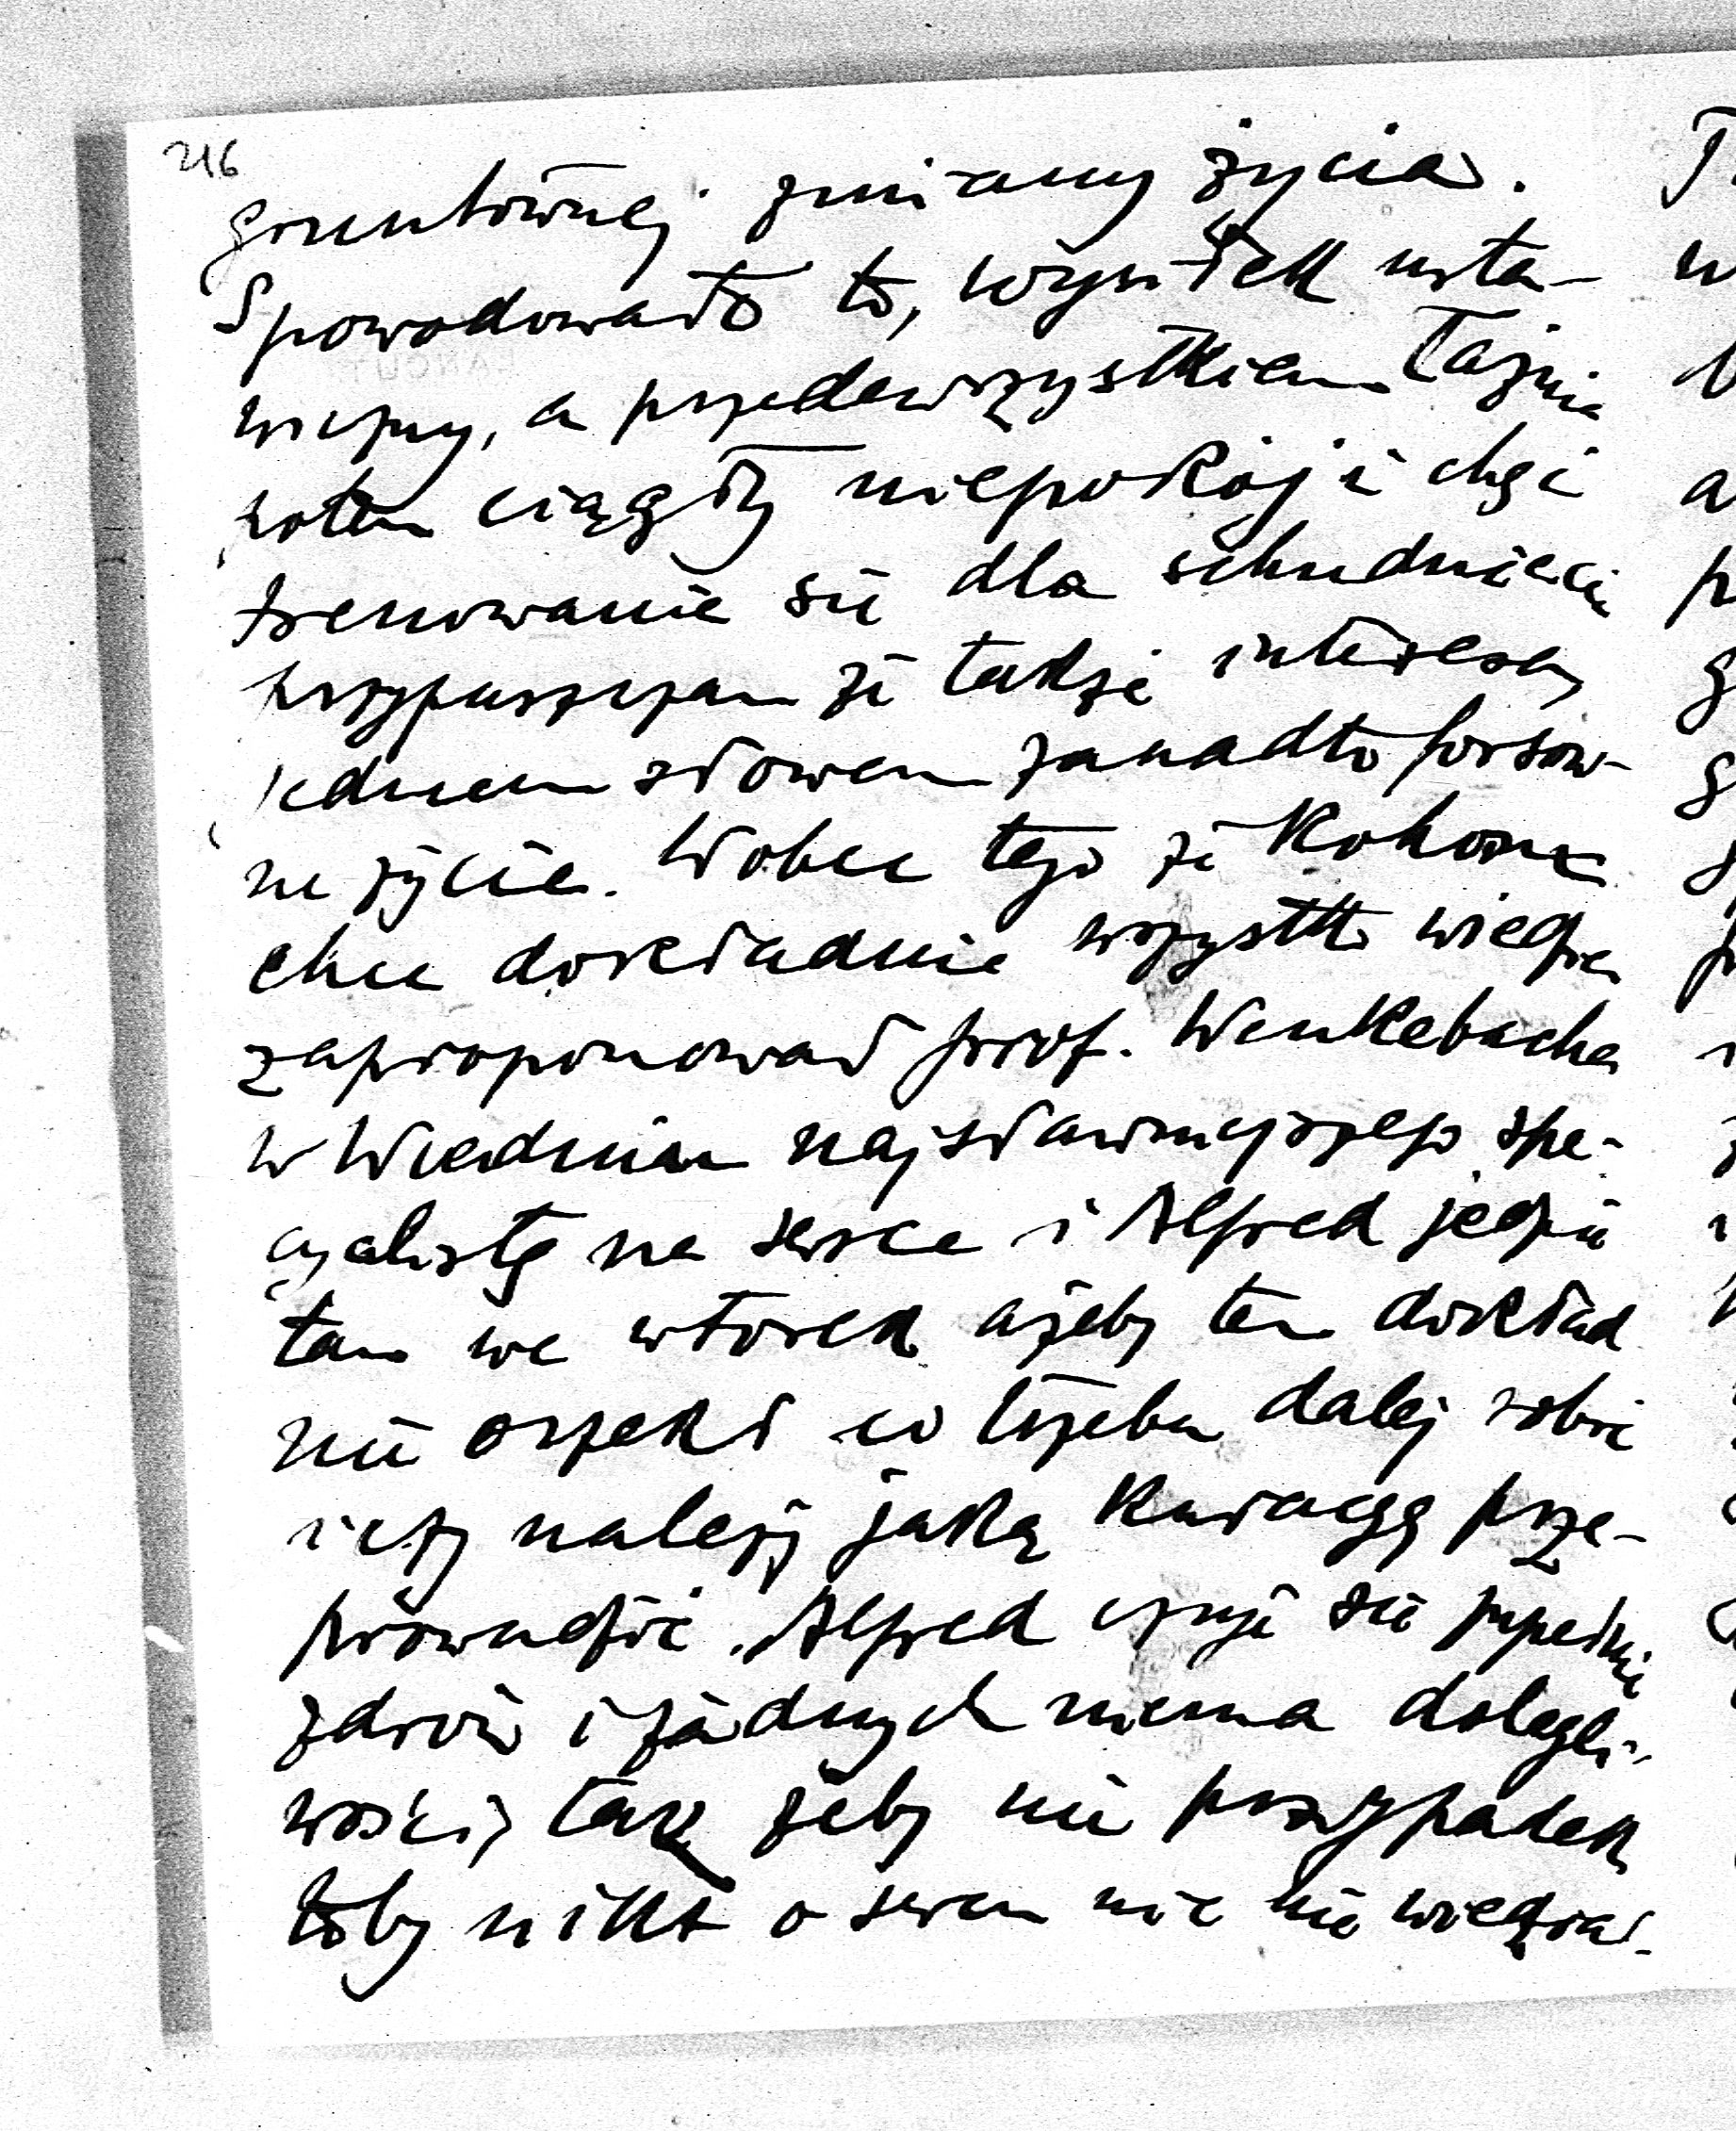 216
gruntownej zmiany życia.
Spowodowało to, wysiłek usta-
wiczny, a przedewszystkiem łaźnia
potem ciągły niepokój i chęć
trenowanie się dla schudnięcia
przypuszczam że także interesy
jednem słowem zanadto forsow-
ne życie. Wobec tego że
chce dokładnie wszystko wiedzieć
zaproponował prof. Wenkebacha
w Wiedniu najsławniejszego spe-
cyalistę na serce i Alfred jedzie
tam we wtorek ażeby ten dokład
nie orzekł co trzeba dalej robić
i czy należy jaką kuracyę prze-
prowadzić. Alfred czuje się zupełnie
zdrów i żadnych niema dolegli-
wości, tak żeby nie przypadek
toby nikt o sercu nic nie wiedział.